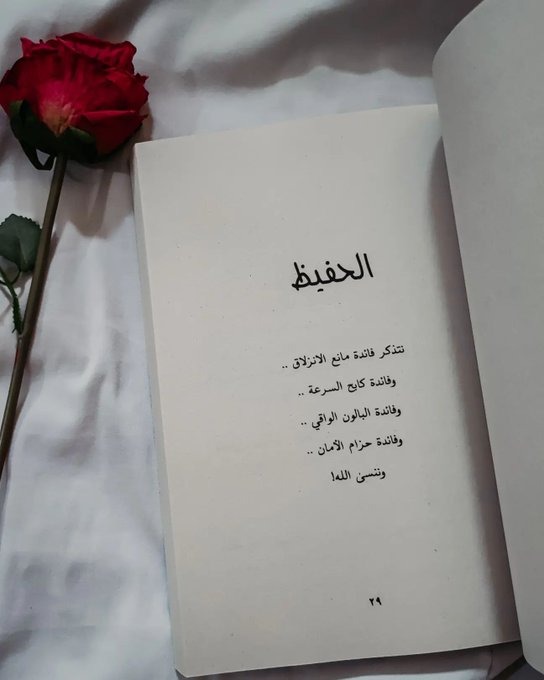 الحفيظ
نتذكر فائدة مانع الانزلاق ..
وفائدة كابح السرعة ..
وفائدة البالون الواقي ..
وفائدة حزام الأمان ..
وننسى الله!
٢٩